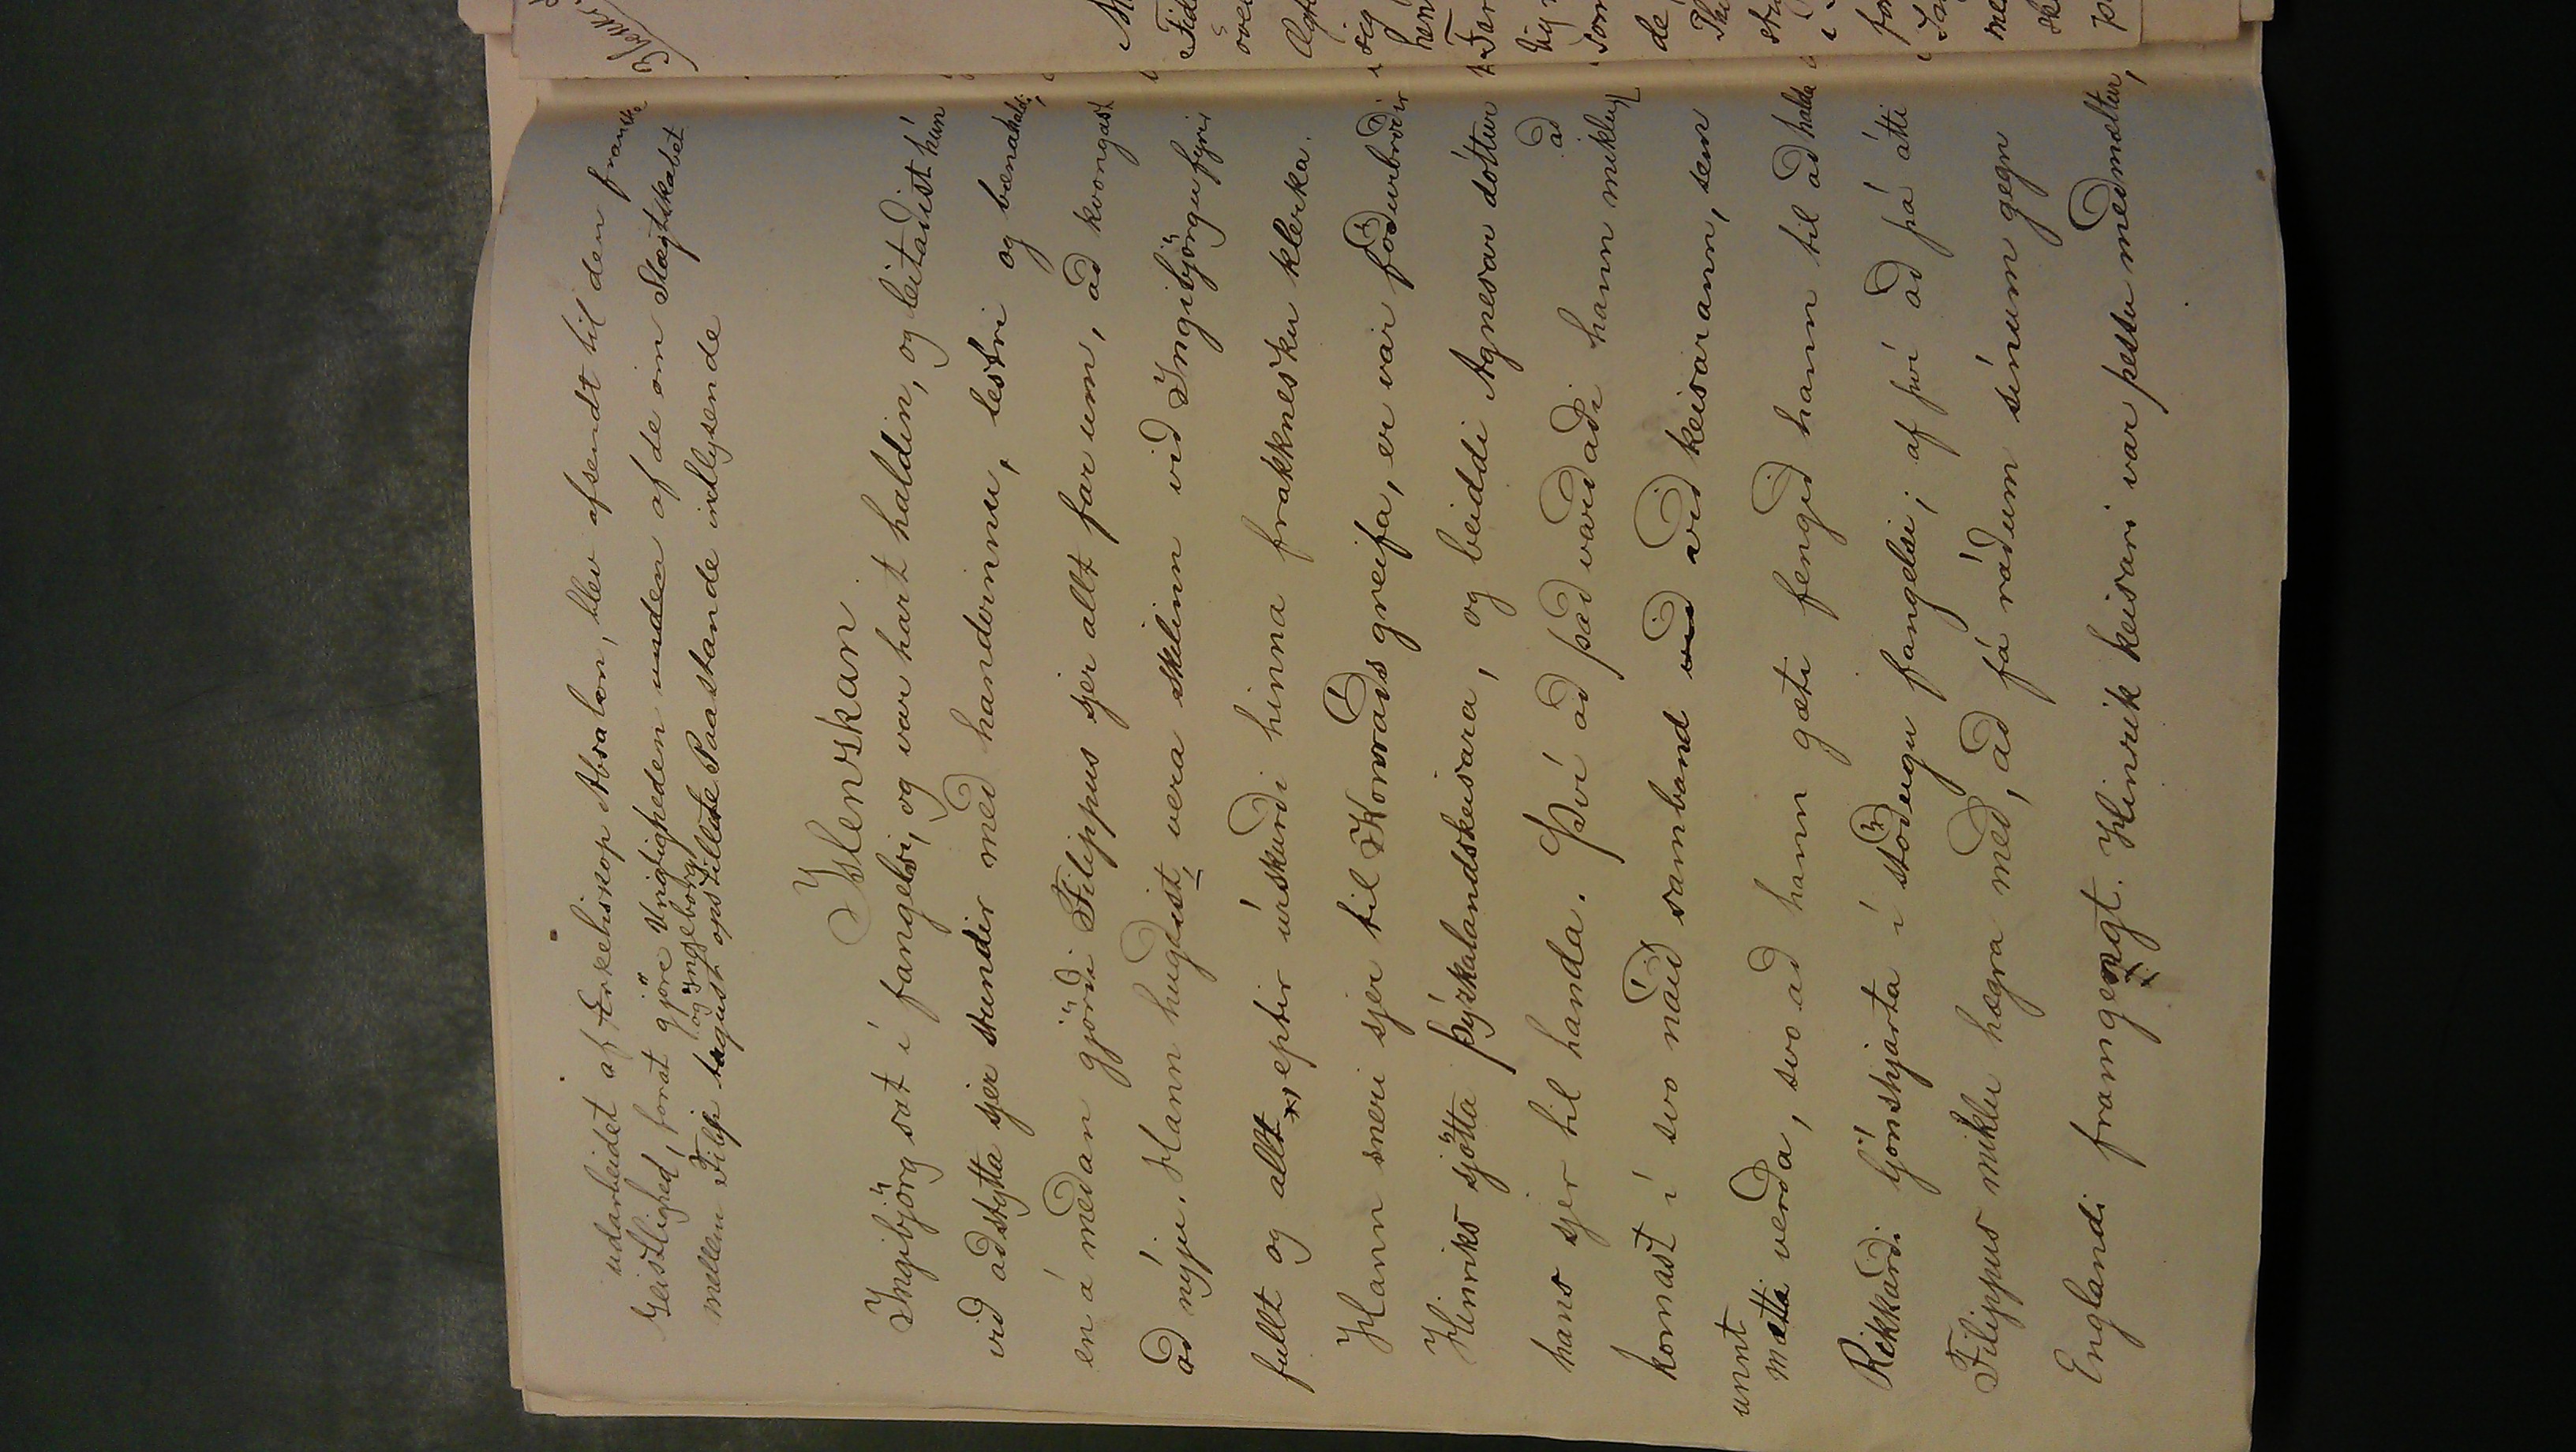 udarbeidet af Erkebiskop Absalon, blev afsendt til den franske
Geistlighed, forat gjøre Urigtigheden uden af de om Slægtskabet
mellem Filip August og Ingeborg opstillede Paastande indlysende
Íslenzkan
Ingibjörg sat í fangelsi, og var hart haldin, og leitaðist hún
við að stytta sjer stundir með handvinnu, lestri og bænahaldi,
en á meðan gjörði Filippus sjer allt far um, að kvongast
að nýju. Hann hugðist vera skilinn við Ingibjörgu fyrir
fullt og allt eptir úrskurði hinna frakknesku klerka.
Hann sneri sjer til Konráðs greifa, er var föðurbróðir
Hinriks sjötta Þýzkalandskeisara, og beiddi Agnesar dóttur
hans sjer til handa. Því að það varðaði hann miklu, að
komast í svo náið samband við við keisarann, sem
unnt mætti verða, svo að hann gæti fengið hann til að halda
Rikkarði ljónshjarta í stöðugu fangelsi; af því að þá átti
Filippus miklu hægra með, að fá ráðum sínum gegn
Englandi framgengt. Hinrik keisari var þessu meðmæltur,